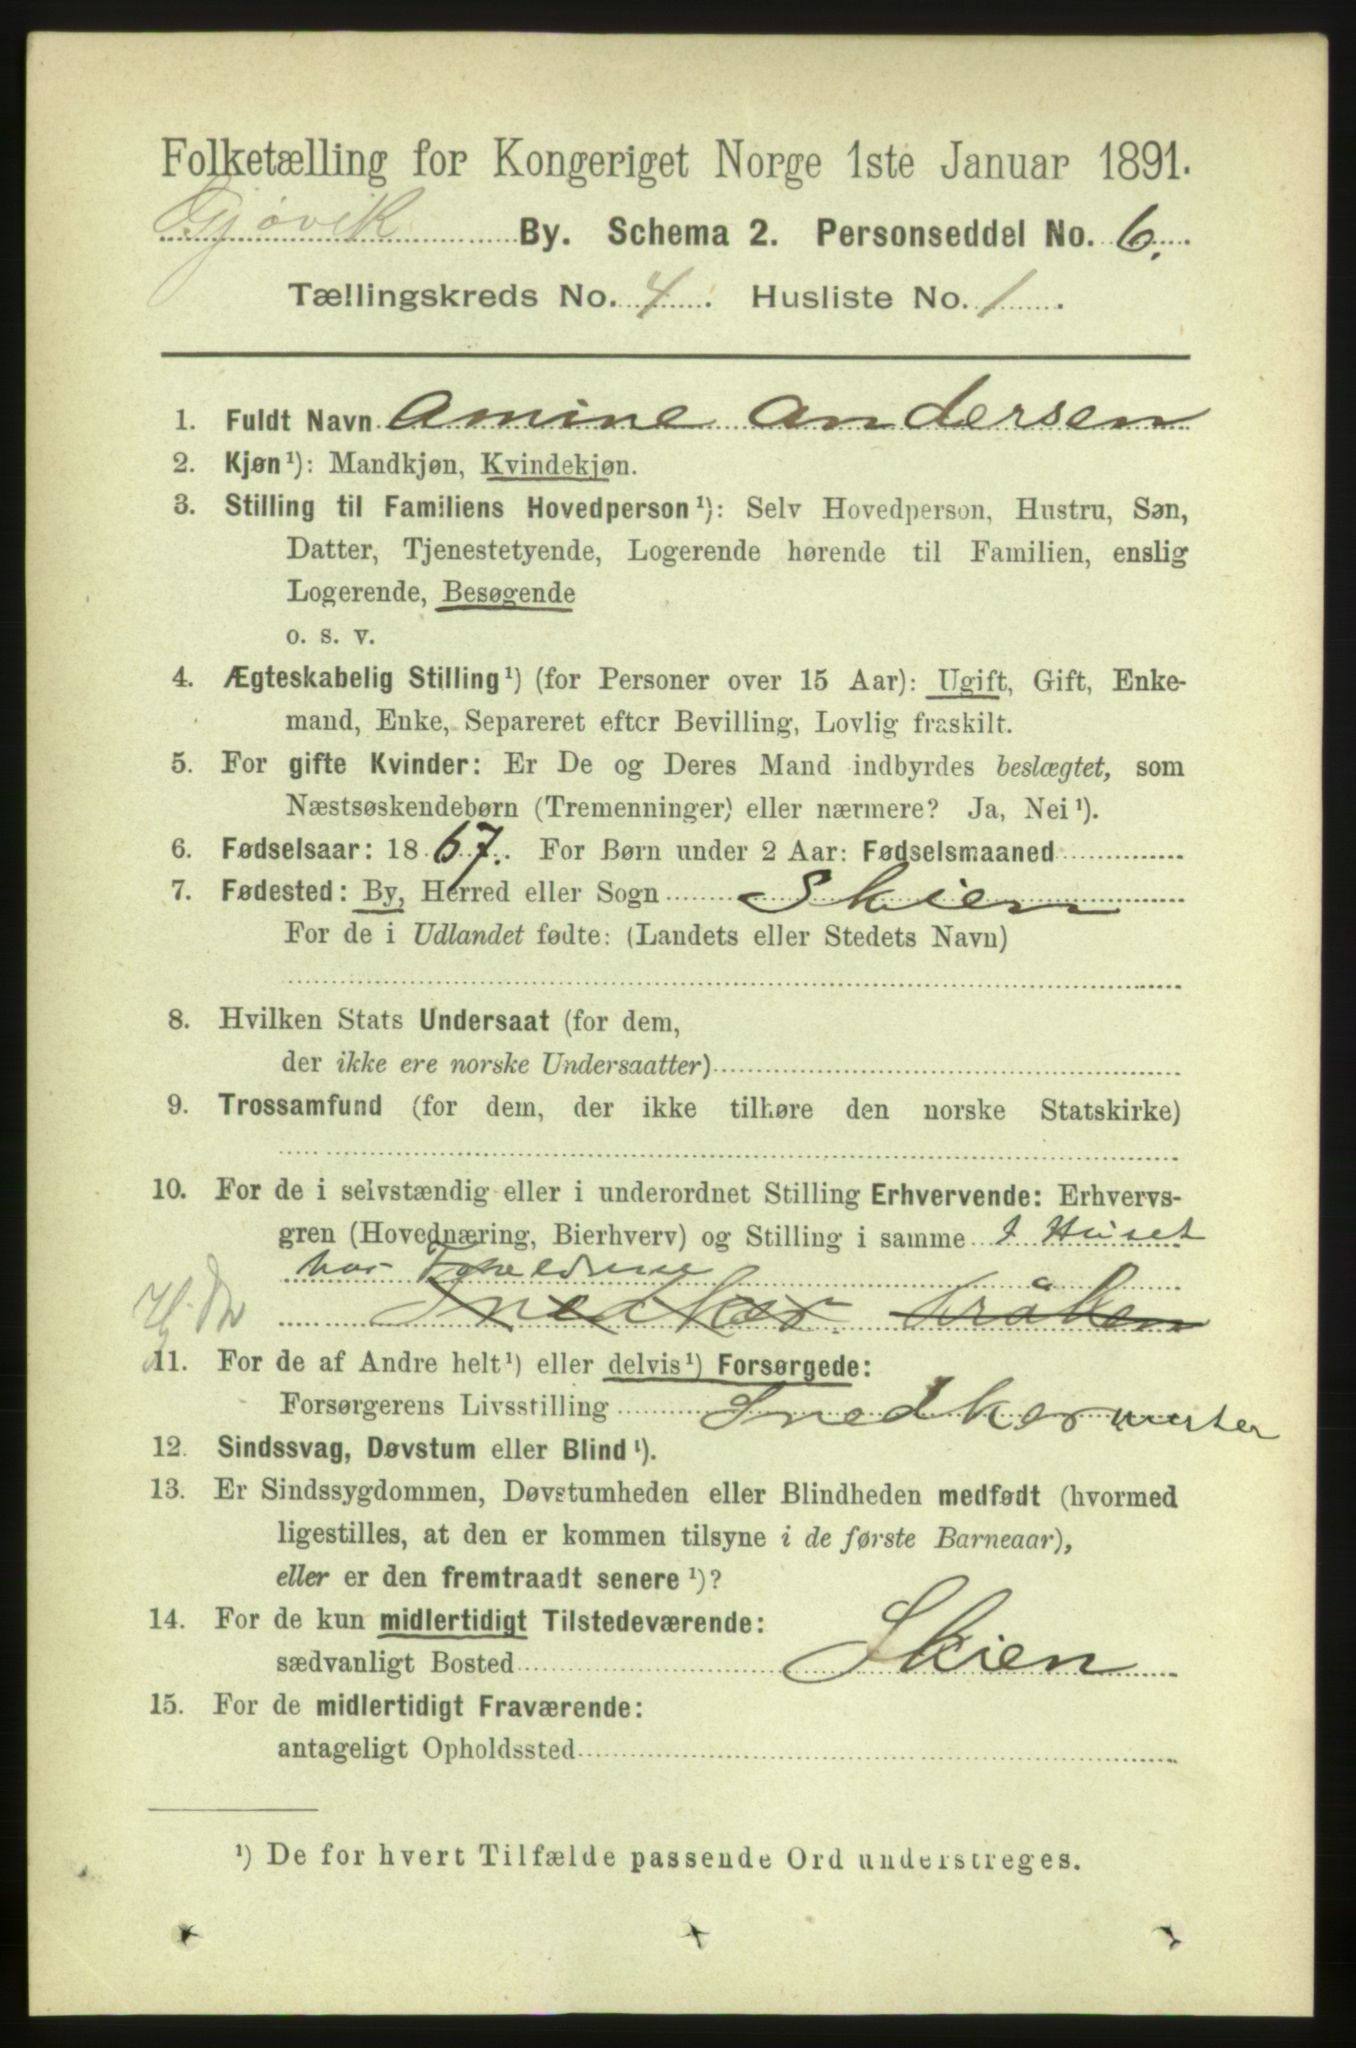 Folketælling for Kongeriget Norge 1ste Januar 1891.
Gjøvik By. Schema 2. Personseddel No. 6.
Tællingskreds No. 4. Husliste No. 1.
1. Fuldt Navn Amine Andersen
2. Kjøn¹): Mandkjøn, Kvindekjøn.
3. Stilling til Familiens Hovedperson¹): Selv Hovedperson, Hustru, Søn,
Datter, Tjenestetyende, Logerende hørende til Familien, enslig
Logerende, Besøgende
o. s. v.
4. Ægteskabelig Stilling¹) (for Personer over 15 Aar): Ugift, Gift, Enke-
mand, Enke, Separeret efter Bevilling, Lovlig fraskilt.
5. For gifte Kvinder: Er De og Deres Mand indbyrdes beslægtet, som
Næstsøskendebørn (Tremenninger) eller nærmere? Ja, Nei¹).
6. Fødselsaar: 1867. For Børn under 2 Aar: Fødselsmaaned
7. Fødested: By, Herred eller Sogn Skien
For de i Udlandet fødte: (Landets eller Stedets Navn)
8. Hvilken Stats Undersaat (for dem,
der ikke ere norske Undersaatter)
9. Trossamfund (for dem, der ikke tilhøre den norske Statskirke)
10. For de i selvstændig eller i underordnet Stilling Erhvervende: Erhvervs-
gren (Hovednæring, Bierhverv) og Stilling i samme I Huset
hos Forældrene
Snedker
11. For de af Andre helt¹) eller delvis¹) Forsørgede:
Forsørgerens Livsstilling Snedkermester
12. Sindssvag, Døvstum eller Blind¹).
13. Er Sindssygdommen, Døvstumheden eller Blindheden medfødt (hvormed
ligestilles, at den er kommen tilsyne i de første Barneaar),
eller er den fremtraadt senere¹)?
14. For de kun midlertidigt Tilstedeværende:
sædvanligt Bosted Skien
15. For de midlertidigt Fraværende:
antageligt Opholdssted
¹) De for hvert Tilfælde passende Ord understreges.